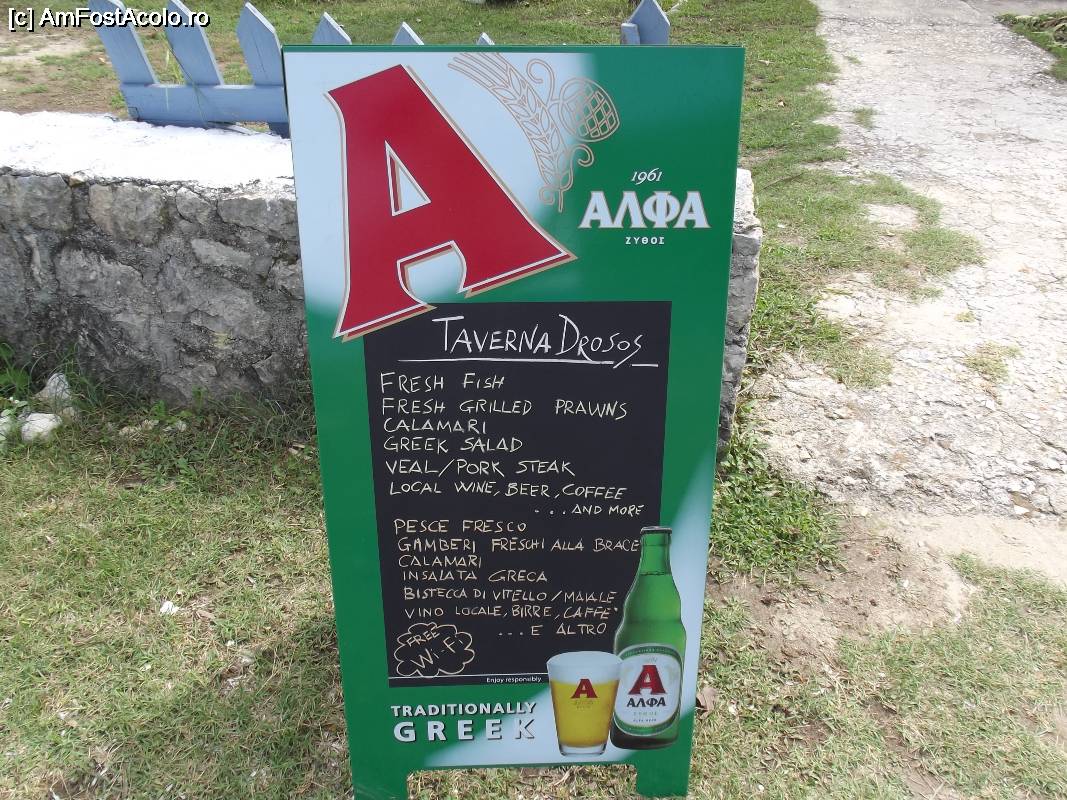 [c] AmFostAcolo.ro
A
1961
ΑΛΦΑ
ΖΥΘΟΣ
TAVERNA DROSOS
FRESH FISH
FRESH GRILLED PRAWNS
CALAMARI
GREEK SALAD
VEAL/PORK STEAK
LOCAL WINE, BEER, COFFEE
... AND MORE
PESCE FRESCO
GAMBERI FRESCHI ALLA BRACE
CALAMARI
INSALATA GRECA
BISTECCA DI VITELLO/MAIALE
VINO LOCALE, BIRRE, CAFFE'
... E ALTRO
FREE
Wi-Fi
Enjoy responsibly
TRADITIONALLY
GREEK
A
ΑΛΦΑ
A
ΑΛΦΑ
ΖΥΘΟΣ